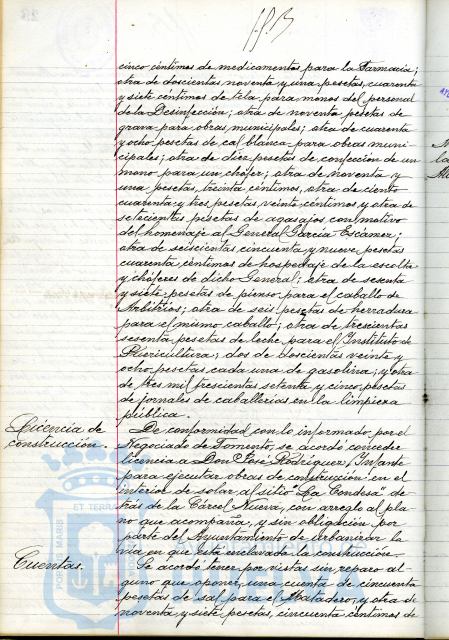 cinco céntimos de medicamentos para la Farmacia;
otra de doscientas noventa y una pesetas, cuarenta
y siete céntimos de tela para monos del personal
de la Desinfección; otra de noventa pesetas de
grava para obras municipales; otra de cuarenta
y ocho pesetas de cal blanca para obras muni-
cipales; otra de diez pesetas de confección de un
mono para un chófer; otra de noventa y
una pesetas, treinta céntimos, otra de ciento
cuarenta y tres pesetas veinte céntimos y otra de
setecientas pesetas de agasajos con motivo
del homenaje al General García Escámez;
otra de seiscientas cincuenta y nueve pesetas
cuarenta céntimos de hospedaje de la escolta
y chóferes de dicho General; otra de sesenta
y siete pesetas de pienso para el caballo de
Arbitrios; otra de seis pesetas de herradura
para el mismo caballo; otra de trescientas
sesenta pesetas de leche para el Instituto de
Puericultura; dos de doscientas veinte y
ocho pesetas cada una de gasolina; y otra
de tres mil trescientas setenta y cinco pesetas
de jornales de caballerías en la limpieza
pública.
Licencia de
construcción.
De conformidad con lo informado por el
Negociado de Fomento, se acordó conceder
licencia a Don José Rodríguez Infante
para ejecutar obras de construcción en el
interior de solar al sitio "La Condesa" de-
trás de la Cárcel Nueva, con arreglo al pla-
no que acompaña, y sin obligación por
parte del Ayuntamiento de urbanizar la
vía en que está enclavada la construcción.
Cuentas.
Se acordó tener por vistas sin reparo al-
guno que oponer, una cuenta de cincuenta
pesetas de sal para el Matadero, y otra de
noventa y siete pesetas, cincuenta céntimos de
ET TERRA